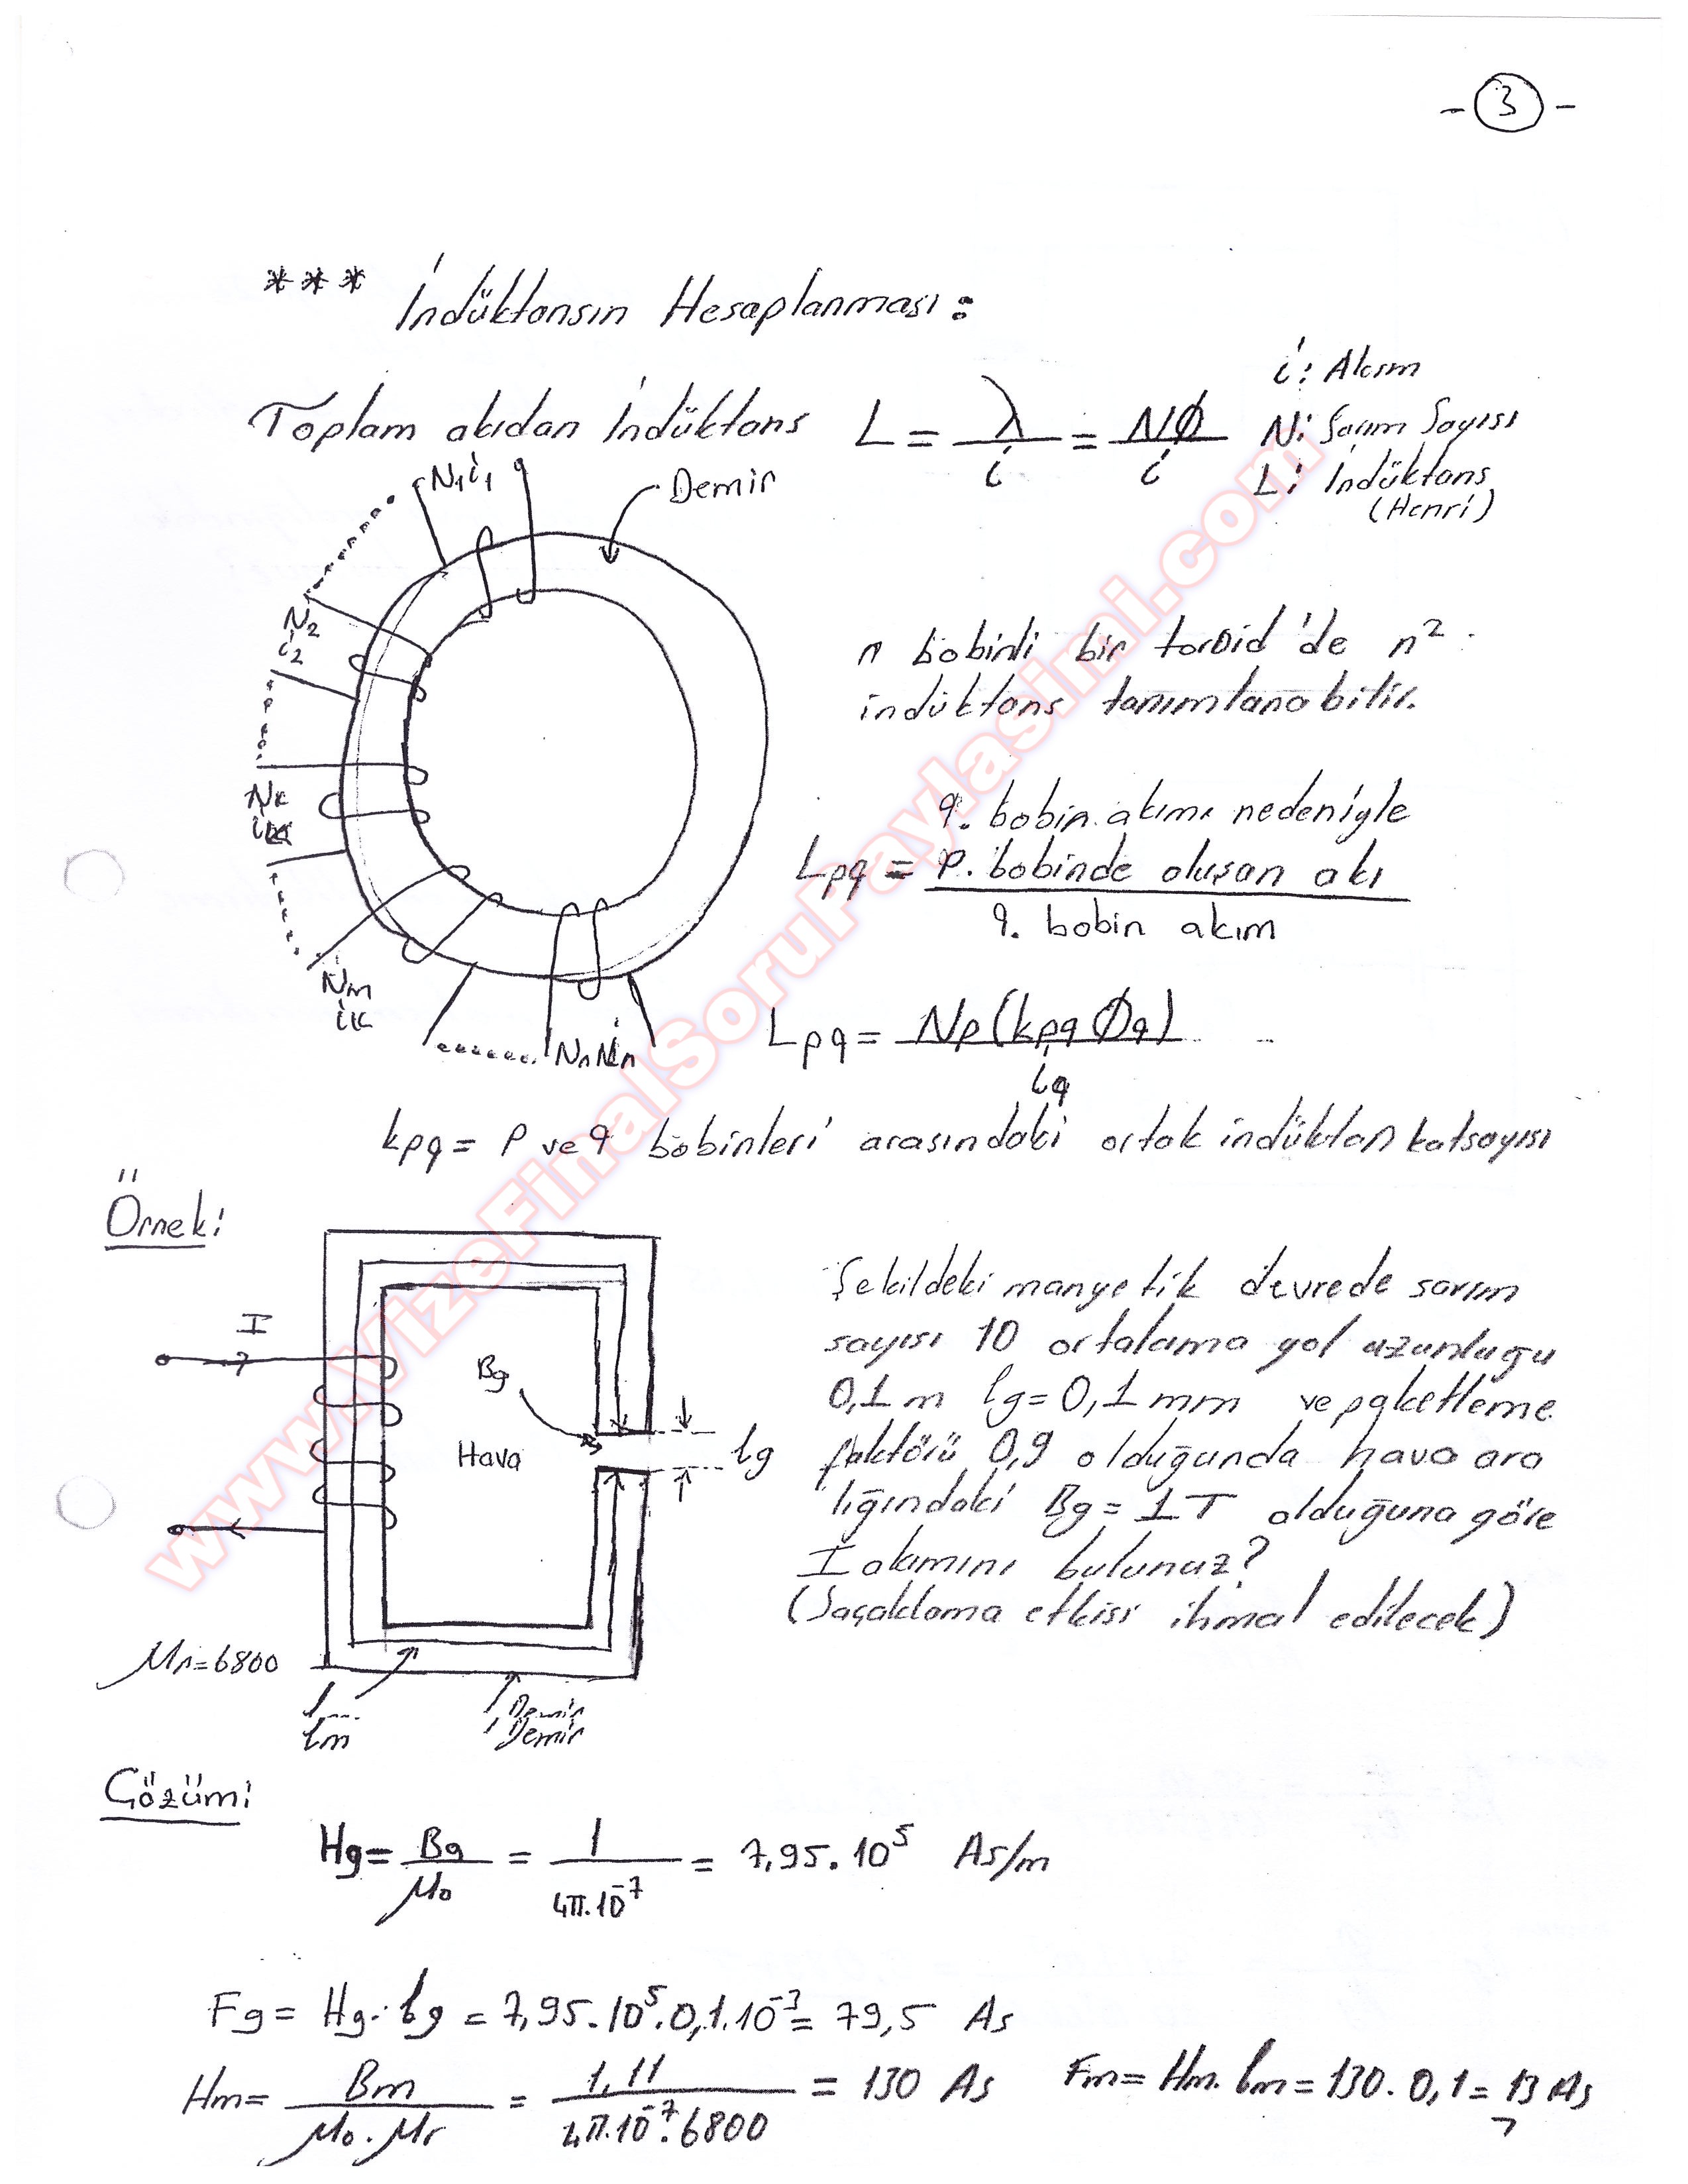 - 3 -
*** İndüktansın Hesaplanması:
Toplam akıdan İndüktans L = λ/i = Nϕ/i
i: Akım
N: Sarım Sayısı
L: İndüktans
(Henri)
N₁i₁
Demir
N₂
i₂
Nk
ik
Nm
ik
n bobinli bir toroid'de n²
indüktans tanımlanabilir.
q. bobin akımı nedeniyle
Lpq = p. bobinde oluşan akı
q. bobin akım
Lpq = Np(kpq ϕq)
iq
kpq = p ve q bobinleri arasındaki ortak indüktan katsayısı
Örnek:
I
Bg
Hava
lg
Mr=6800
lm
Demir
Demir
Şekildeki manyetik devrede sarım
sayısı 10 ortalama yol uzunluğu
0,1 m lg=0,1 mm ve paketleme
faktörü 0,9 olduğunda hava ara
lığındaki Bg = 1T olduğuna göre
I akımını bulunuz?
(Saçaklama etkisi ihmal edilecek)
Çözüm:
Hg = Bg/μ₀ = 1/4π.10⁻⁷ = 7,95.10⁵ As/m
Fg = Hg.lg = 7,95.10⁵.0,1.10⁻³ = 79,5 As
Hm = Bm/μ₀.μr = 1,11/4π.10⁻⁷.6800 = 130 As Fm = Hm.lm = 130.0,1 = 13 As
www.VizeFinalSoruPaylasimi.com